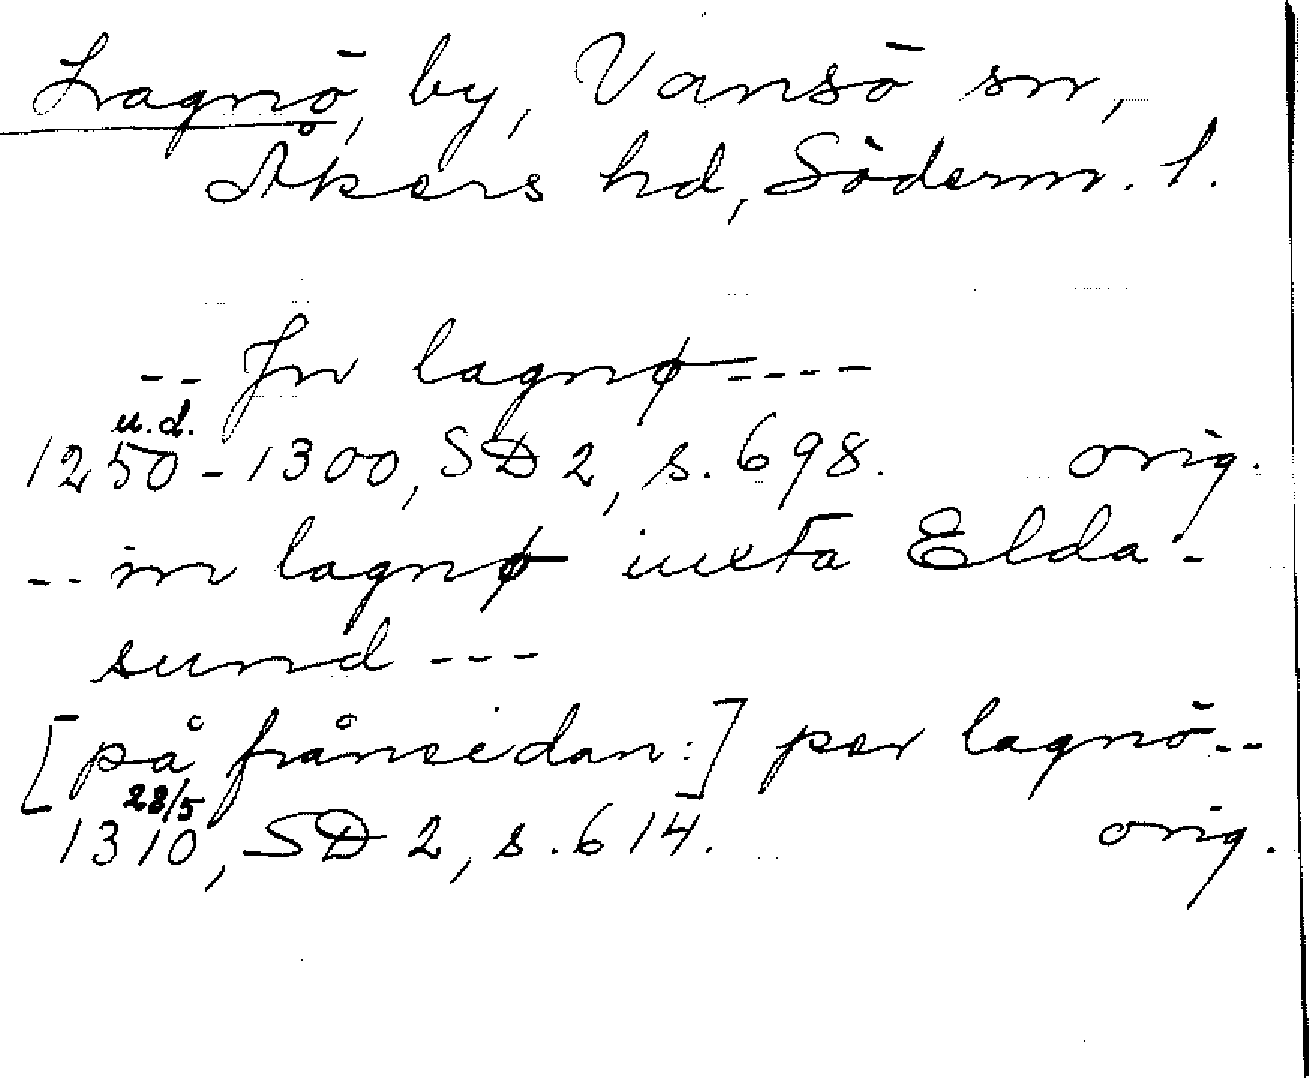 Lagnö, by, Vansö sn,
Åkers hd, Söderm. l.
-- Jn lagnø ----
u.d.
1250-1300, SD 2, s. 698. orig.
-- in lagnø iuxta Elda-
sund ---
[på frånsidan:] per lagnö --
28/5
1310, SD 2, s. 614. orig.